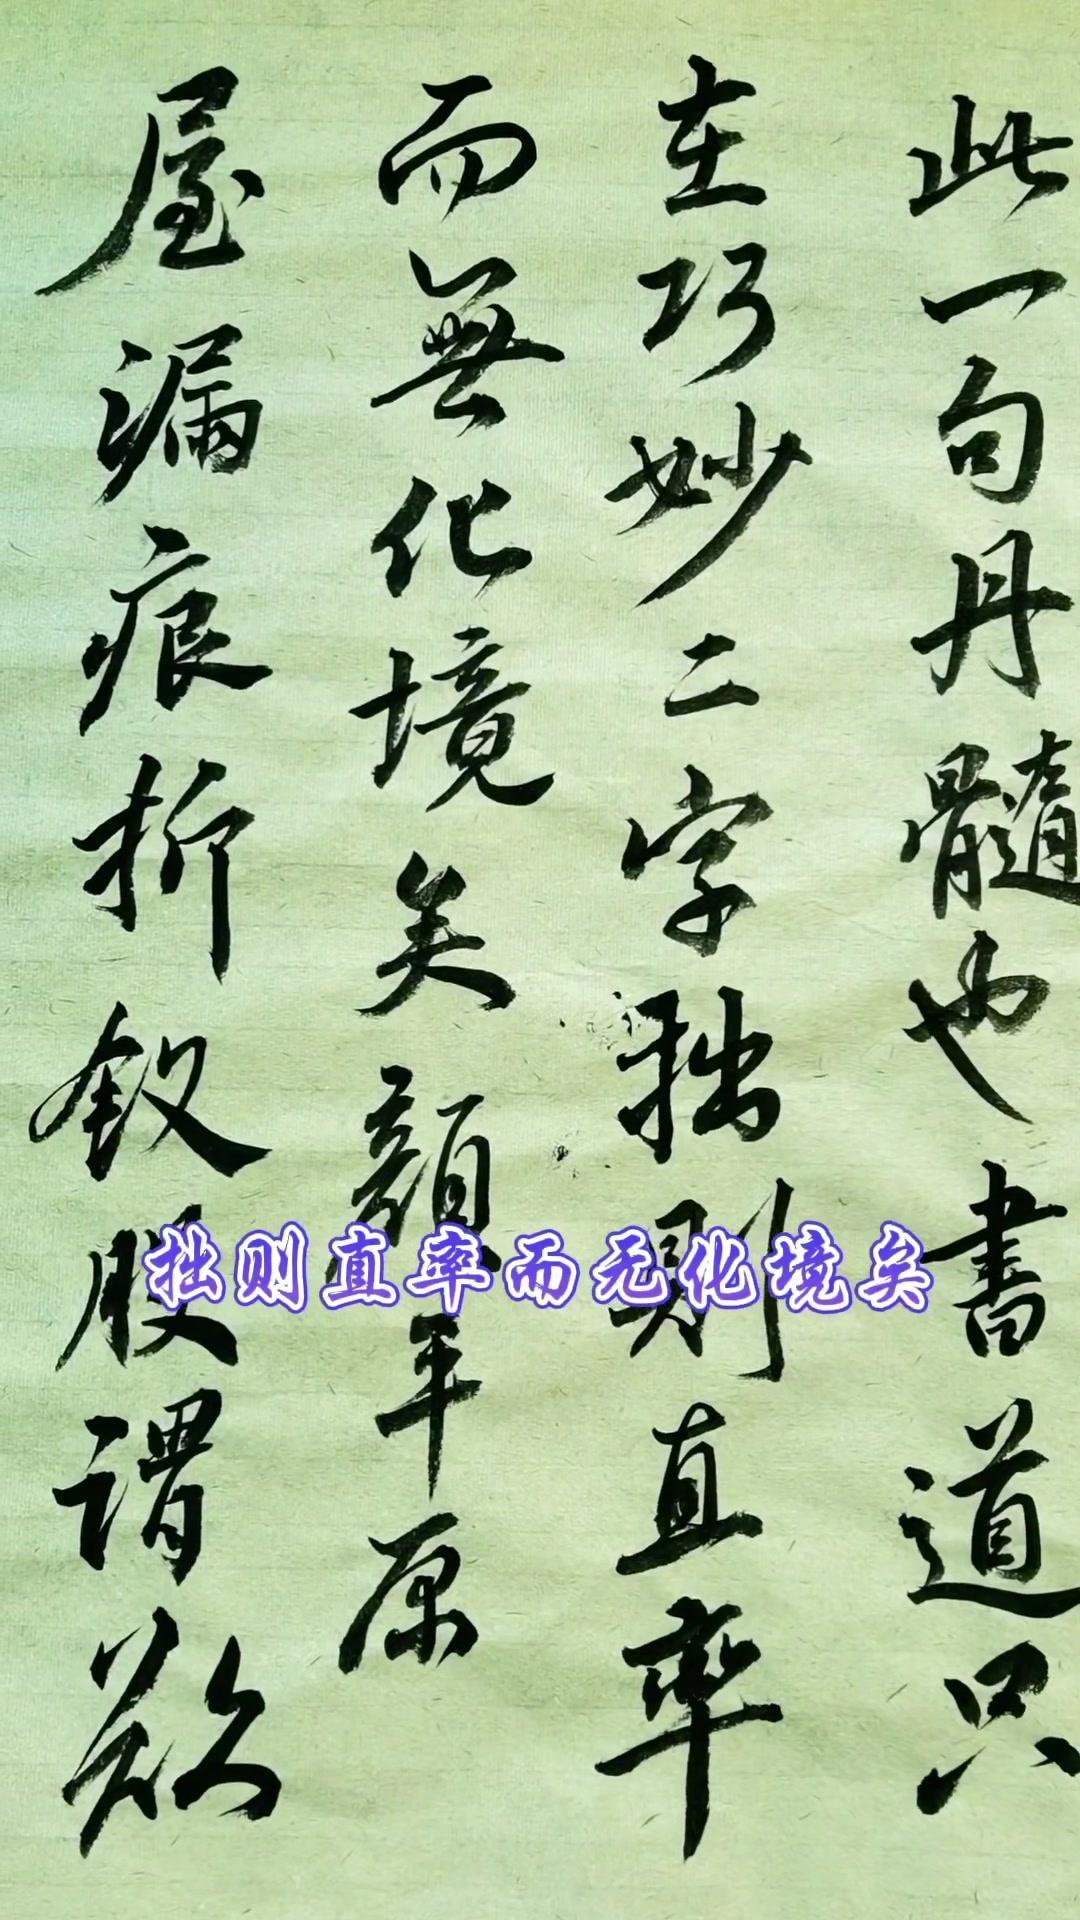 此一句丹髓也書道只
在巧妙二字拙則直率
而無化境矣顏平原
屋漏痕折釵股謂欲
拙则直率而无化境矣